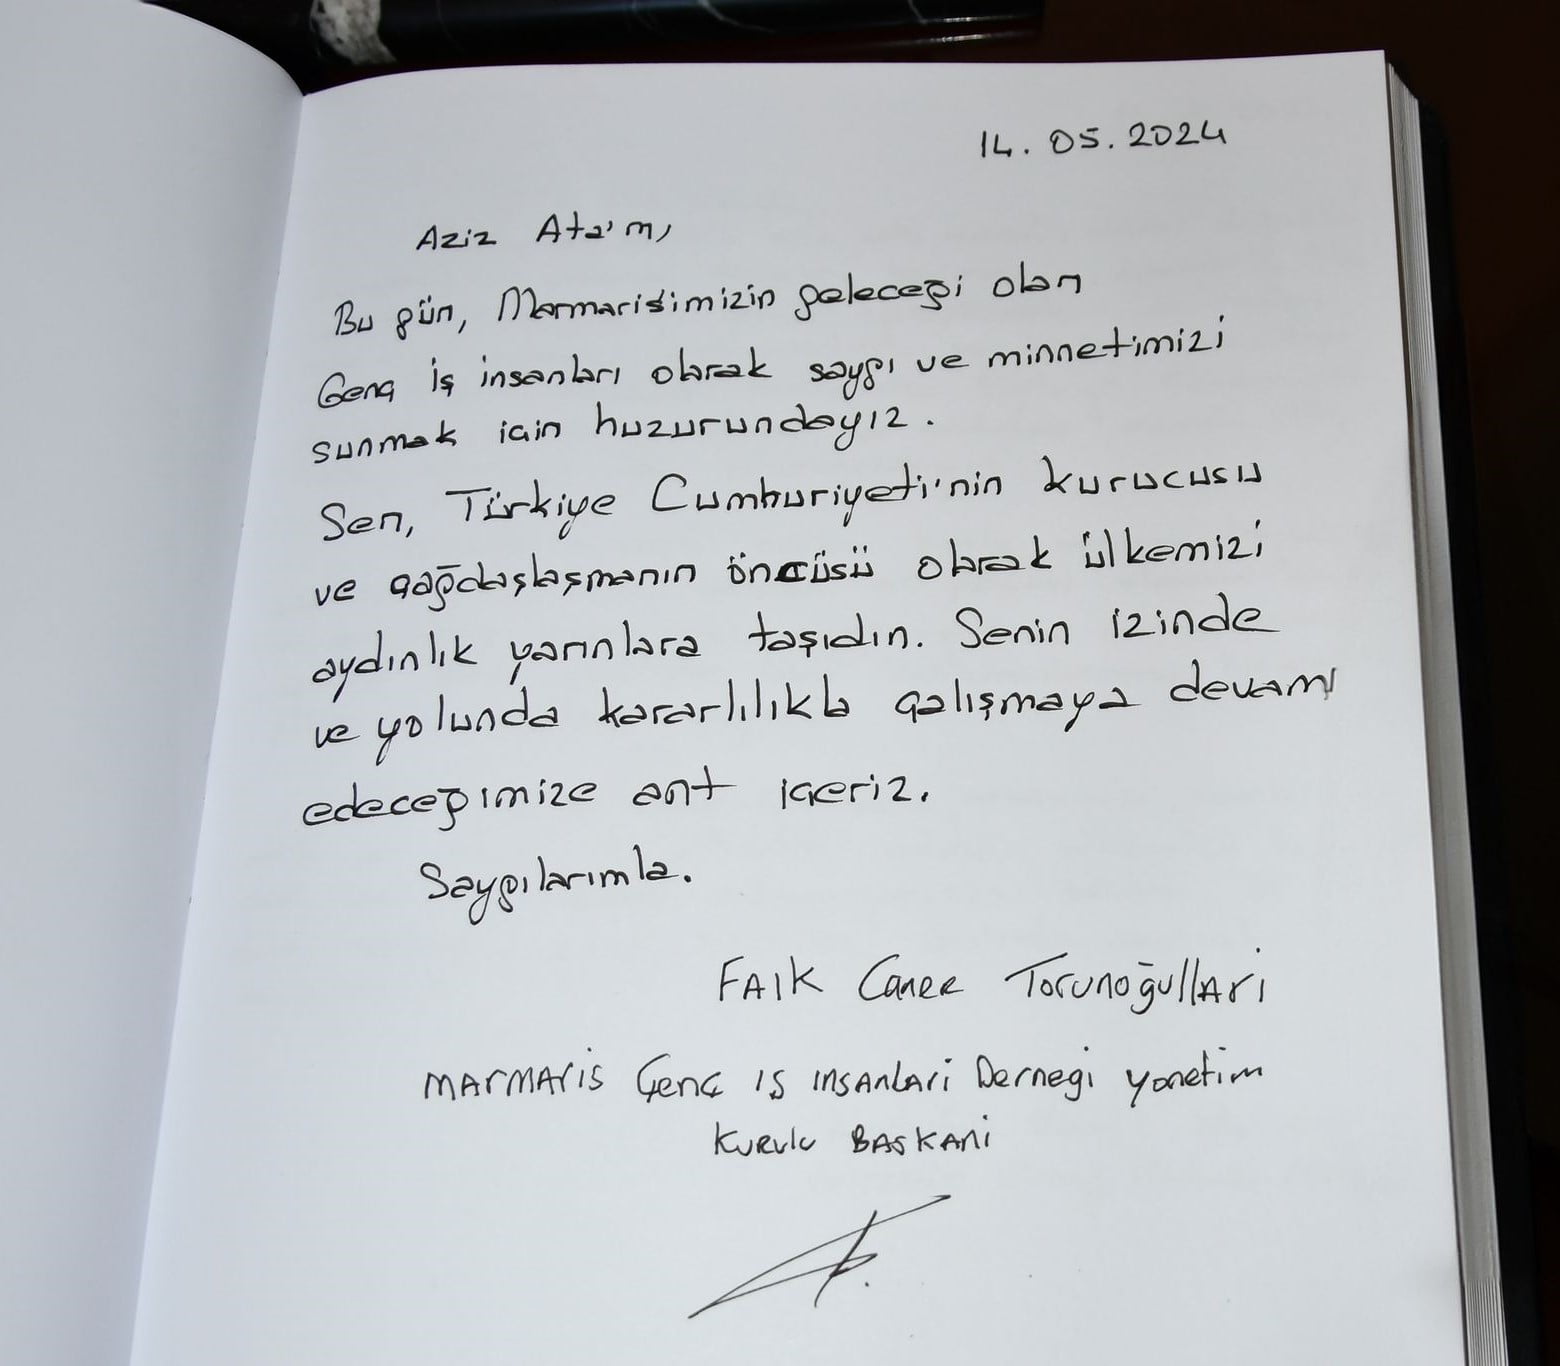 14.05.2024
Aziz Ata'm,
Bu gün, Marmarisimizin geleceği olan
Genç iş insanları olarak saygı ve minnetimizi
sunmak için huzurundayız.
Sen, Türkiye Cumhuriyeti'nin kurucusu
ve çağdaşlaşmanın öncüsü olarak ülkemizi
aydınlık yarınlara taşıdın. Senin izinde
ve yolunda kararlılıkla çalışmaya devam
edeceğimize ant içeriz.
Saygılarımla.
FAIK Caner Torunoğulları
MARMARIS Genç iş insanlari Dernegi yonetim
kurulu BAŞKANi